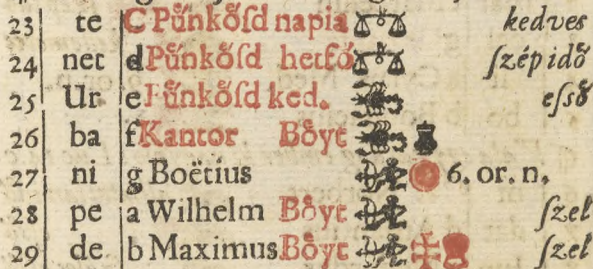 23 te C Pűnkőſd napia kedves
24 net d Pűnkőſd hetfő ſzép idő
25 Ur e Pűnkőſd ked. eſső
26 ba f Kantor Bőyt
27 ni g Boëtius 6. or. n.
28 pe a Wilhelm Bőyt ſzel
29 de b Maximus Bőyt ſzel